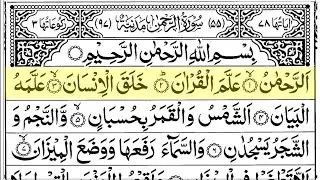 اٰیَاتُهَا ٧٨ (٥٥) سُوْرَةُ الرَّحْمٰنِ مَدَنِيَّةٌ (٩٧) رُكُوْعَاتُهَا ٣
بِسْمِ اللّٰهِ الرَّحْمٰنِ الرَّحِيْمِ
اَلرَّحْمٰنُ ۝١ عَلَّمَ الْقُرْاٰنَ ۝٢ خَلَقَ الْاِنْسَانَ ۝٣ عَلَّمَهُ
الْبَيَانَ ۝٤ اَلشَّمْسُ وَالْقَمَرُ بِحُسْبَانٍ ۝٥ وَّالنَّجْمُ وَ
الشَّجَرُ يَسْجُدٰنِ ۝٦ وَالسَّمَآءَ رَفَعَهَا وَوَضَعَ الْمِيْزَانَ ۝٧